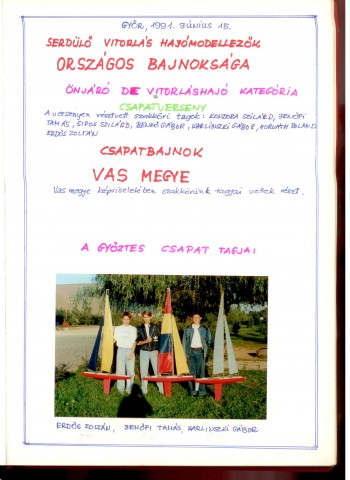 GYŐR, 1991. JÚNIUS 15.
SERDÜLŐ VITORLÁS HAJÓMODELLEZŐK
ORSZÁGOS BAJNOKSÁGA
ÖNJÁRÓ DE VITORLÁSHAJÓ KATEGÓRIA
CSAPATVERSENY
A versenyen résztvett szakköri tagok: KONDORA SZILÁRD, JENŐFI
TAMÁS, SIPOS SZILÁRD, BENKŐ GÁBOR, KARLINSZKI GÁBOR, HORVÁTH ROLAND
ERDŐS ZOLTÁN
CSAPATBAJNOK
VAS MEGYE
Vas megye képviseletében szakkörünk tagjai vettek részt.
A GYŐZTES CSAPAT TAGJAI
ERDŐS ZOLTÁN, JENŐFI TAMÁS, KARLINSZKI GÁBOR